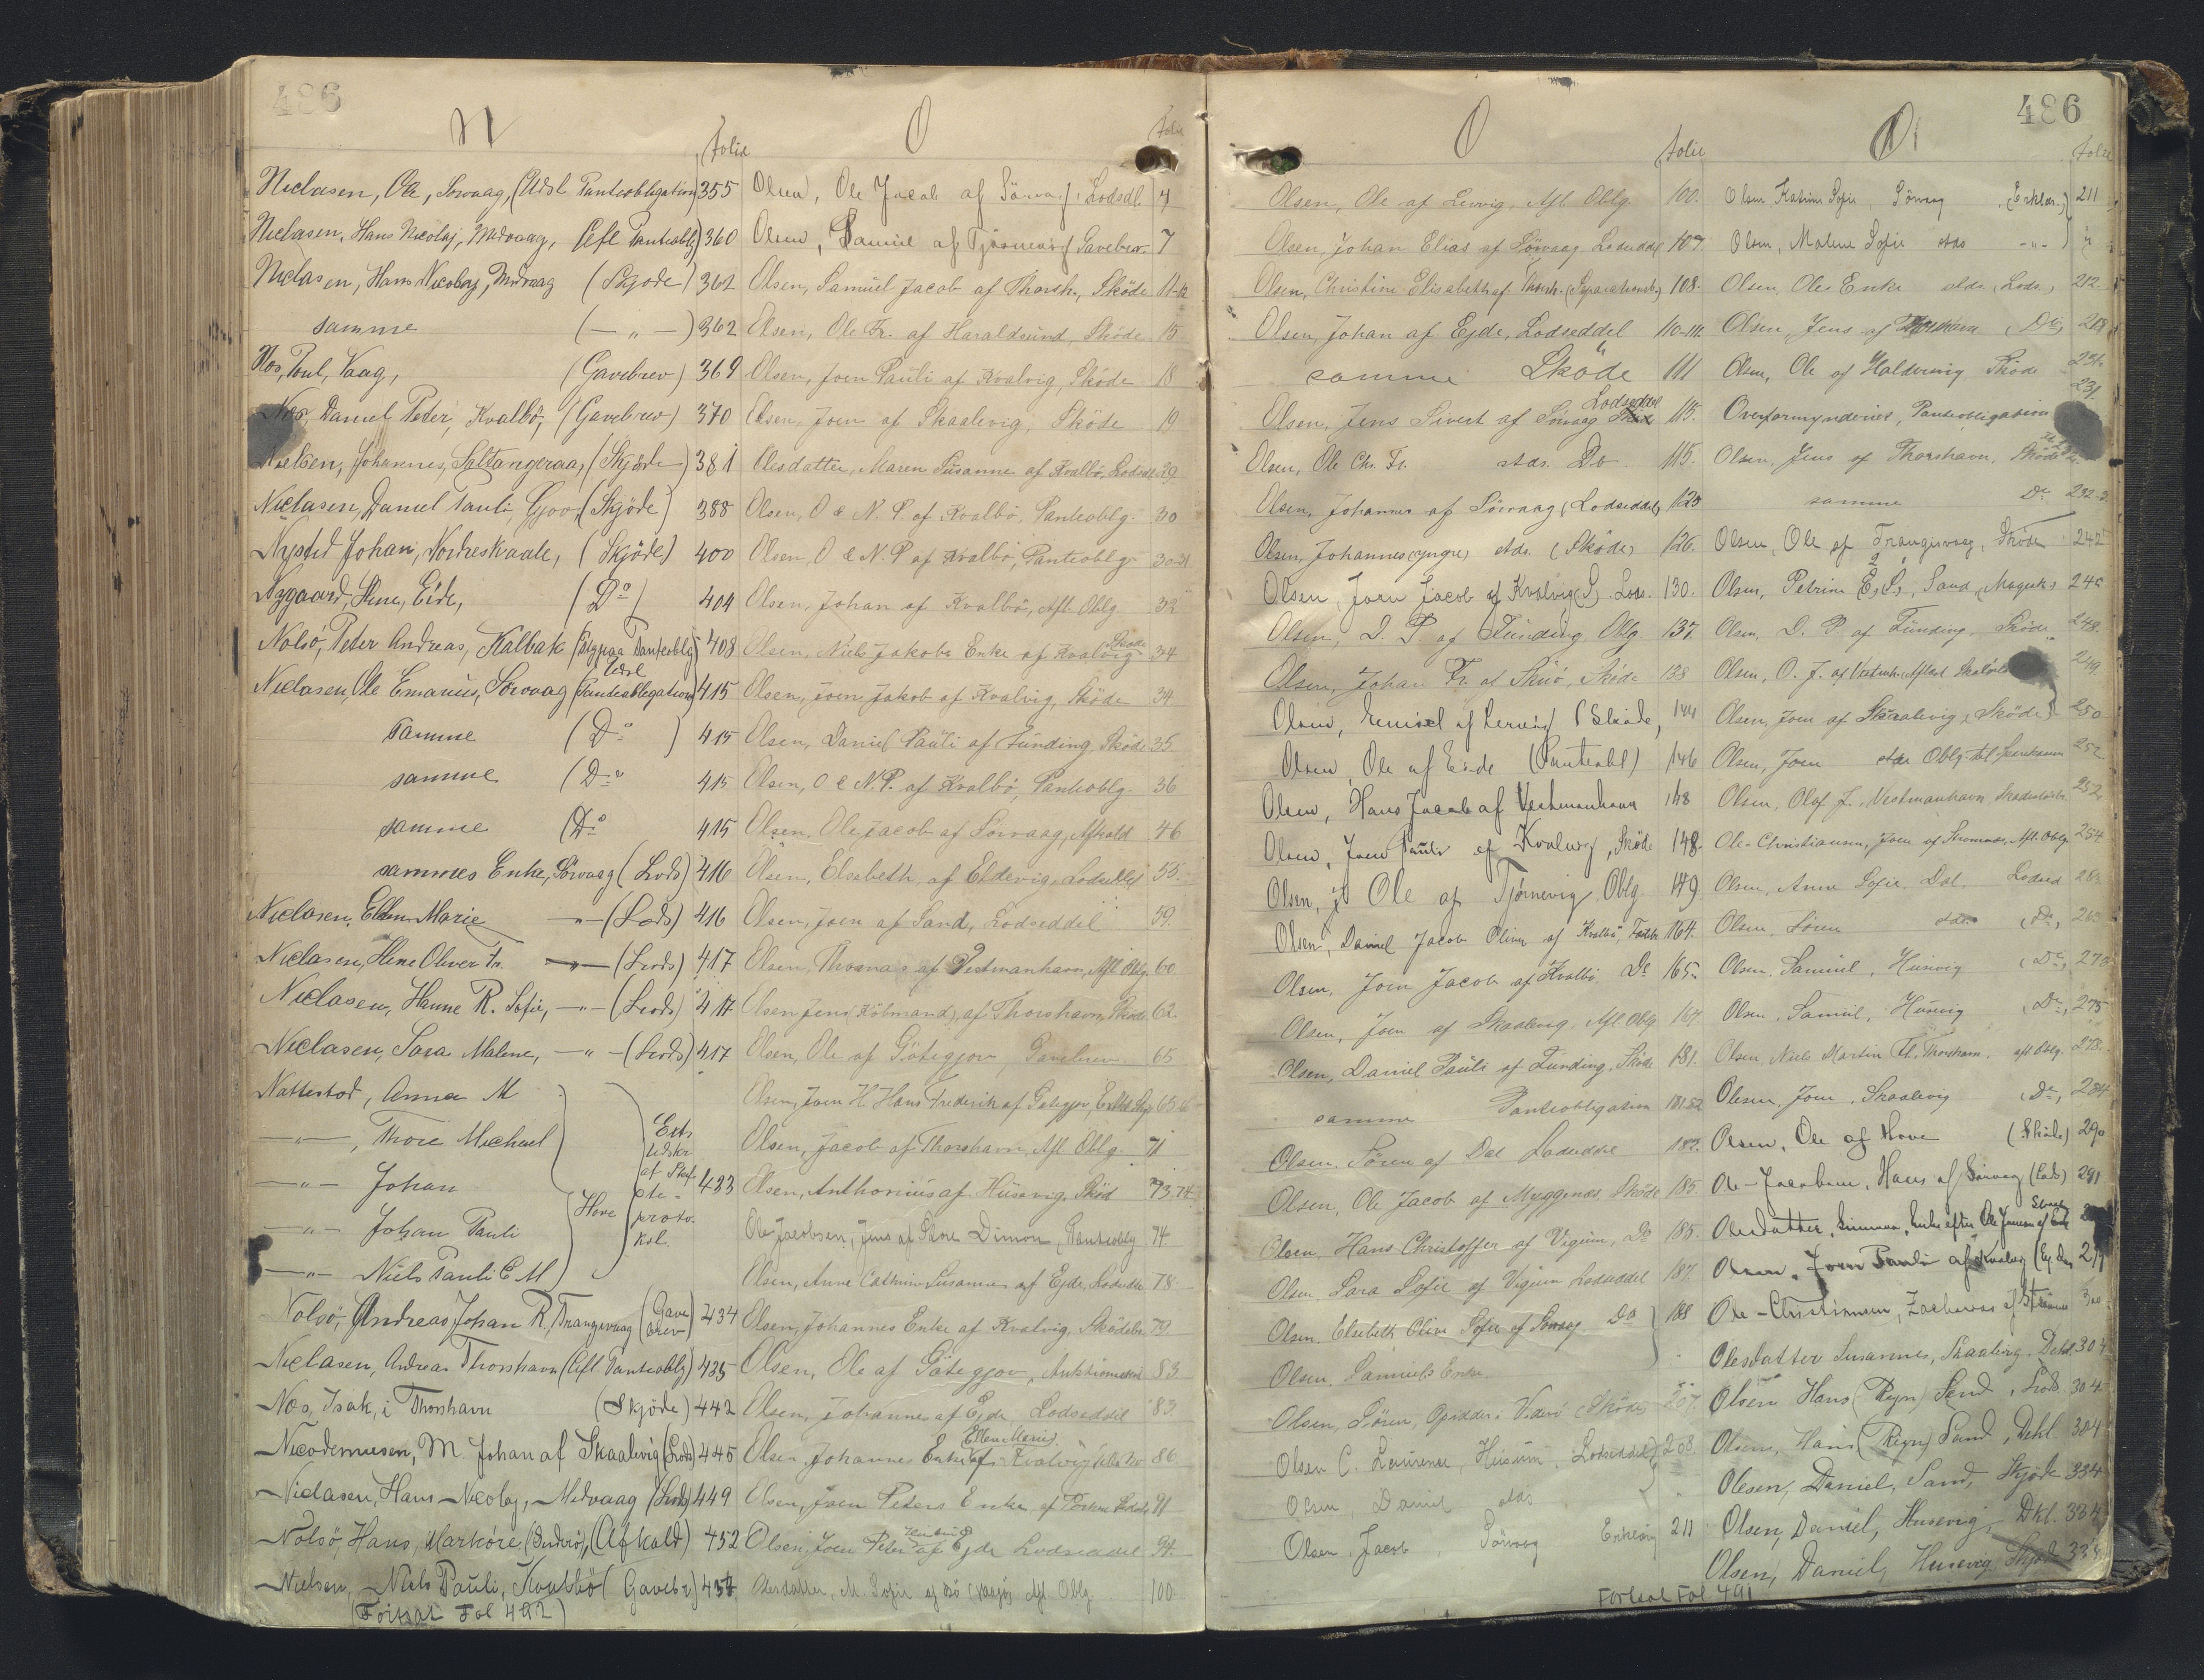 486
N
folie
Niclasen, Ole, Sørvaag, (Udsl Panteobligation) 355
Niclasen, Hans Nicolaj, Midvaag, (Afl. Panteoblg) 360
Niclasen, Hans Nicolaj, Midvaag (Skjøde) 362
samme (— „ —) 362
Nos, Poul, Vaag, (Gavebrev) 369
Nos, Daniel Peter, Kvalbø, (Gavebrev) 370
Nielsen, Johannes, Saltangeraa, (Skjøde) 381
Niclasen, Daniel Pauli, Gjov (Skjøde) 388
Nysted Johan, Nordreskaale, (Skjøde) 400
Nygaard, Hene, Eide, (Do) 404
Nolsø, Peter Andreas, Kalbak Panteoblg) 408
Niclasen, Ole Emanius, Sörvaag Udsl (Panteobligation) 415
samme (Do) 415
samme (Do 415
samme (Do 415
sammes Enke, Sörvaag (Lods) 416
Niclasen, Ellen Marie —„— (Lods) 416
Niclasen, Hene Oliver Fr. —„— (Lods) 417
Niclasen, Hanne R. Sofie, —„— (Lods) 417
Niclasen, Sara Malene, —„— (Lods) 417
Nattestad, Anna M
—„—, Thore Michael
—„— Johan
—„— Johan Pauli
—„— Niels Pauli E M
Hove
Extr
Udskr
af Skif
te-
proto-
kol.
433
Nolsö, Andreas Johan R, Trangisvaag (Gave brev) 434
Niclasen, Andreas Thorshavn (Afl. Panteoblg) 435
Nos, Isak, i Thorshavn (Skjöde) 442
Nicodemusen, M Johan af Skaalevig (Lods) 445
Niclasen, Hans Nicolaj, Midvaag (Lods) 449
Nolsö, Hans, Marköre, (Suderö), (Afkald) 452
Nielsen, Niels Pauli, Kvalbö (Gavebr) 454
(Fortsat Fol 492)
O
folie
Olsen, Ole Jacob af Sörvaag, Lodsdl. 4
Olsen, Samuel af Tjörnevig Gavebrev. 7
Olsen, Samuel Jacob af Thorsh., Sköde 11-12
Olsen, Ole Fr. af Haraldsund, Sköde 15
Olsen, Joen Pauli af Kvalvig, Sköde 18
Olsen, Joen af Skaalevig, Sköde 19
Olesdatter, Maren Susanne af Kvalbö, Lodsed 29
Olsen, O & N. P. af Kvalbö, Panteoblg. 30
Olsen, O & N. P af Kvalbö, Panteoblg. 30-31
Olsen, Johan af Kvalbö, Afl. Oblg. 32
Olsen, Niels Jakobs Enke af Kvalvig Sköde 34
Olsen, Joen Jakob af Kvalvig, Sköde 34
Olsen, Daniel Pauli af Funding, Sköde 35
Olsen, O & N. P. af Kvalbö, Panteoblg. 36
Olsen, Ole Jacob af Sörvaag, Afkald 46
Olsen, Elsebeth af Eldevig, Lodseddel 55.
Olsen, Joen af Sand, Lodseddel 59.
Olsen, Thomas af Vestmanhavn, Afl. Oblg. 60
Olsen Jens (Köbmand), af Thorshavn, Sköde 62.
Olsen, Ole af Götegjov, Gavebrev. 65
Olsen, Joen H. Hans Frederik af Götegjov, 65-66
Olsen, Jacob af Thorshavn, Afl. Oblg. 71
Olsen, Anthonius af Husevig, Sköd 73-74
Ole Jacobsen, Jens af Store Dimon, Panteoblg 74.
Olsen, Anne Cathrine Susanne af Ejde, Lodseddel 78.
Olsen, Johannes Enke af Kvalvig, Sködebr. 79.
Olsen, Ole af Götegjov, 83.
Olsen, Johannes af Ejde, Lodseddel 83.
Olsen Johannes Enke (Ellen Marie) af Kvalvig 86.
Olsen, Joen Peters Enke af 91
Olsen, Joen Peter af Ejde Lodseddel 94.
Olesdatter, M. Sofie af Bö (Vaagö) Afl. Oblg. 100.
O
folie
Olsen, Ole af Lervig, Afl. Oblg. 100.
Olsen, Johan Elias af Sörvaag Lodseddel 107.
Olsen, Christine Elisabeth af Thorsh. 108.
Olsen, Johan af Ejde, Lodseddel 110-111.
samme Sköde 111
Olsen, Jens Sivert af Sörvaag Lodseddel 115.
Olsen, Ole Chr. Fr. stds. Do. 115.
Olsen, Johannes af Sörvaag (Lodseddel) 123
Olsen, Johannes (yngre) stds. (Sköde) 126.
Olsen, Joen Jacob af Kvalvig (S) Lods. 130.
Olsen, D. P. af Funding, Oblg. 137.
Olsen, Johan Fr. af Skuö, Sköde 138
Olsen, af Lervig (Sköde, 144
Olsen, Ole af Eide (Panteobl) 146
Olsen, Hans Jacob af Vestmanhavn 148
Olsen, Joen Pauli af Kvalvig, Sköde 148.
Olsen, Ole af Tjørnevig, Oblg 149
Olsen, Daniel Jacob Oliver af Kvalbö, 164.
Olsen, Joen Jacob af Kvalbö, Do 165.
Olsen, Joen af Skaalevig, Afl. Oblg 167
Olsen, Daniel Pauli af Funding, Sköde 181.
samme Panteobligation 181.82
Olsen, Sören af Dal Lodseddel 183.
Olsen, Ole Jacob af Myggenæs, Sköde 185.
Olsen, Hans Christoffer af Viguim, Do 185.
Olsen, Sara Sofie af Viguim Lodseddel 187.
Olsen, Elsebeth Oline Sofie af Sörvaag Do 188
Olsen, Samuels Enke.
Olsen, Sören, Viderö (Sköde) 207.
Olsen C. Laurence, Husum, Lodseddel 208.
Olsen, Daniel stds
Olsen, Jacob, Sörvaag Erklæring 211
486
O
folie
Olsen Katrine Sofie, Sörvaag (Erklær.) 211
Olsen, Malene Sofie stds —„—
Olsen, Oles Enke stds. (Lods., 212.
Olsen, Jens af Thorshavn (Do,
Olsen, Ole af Haldersvig, Sköde 231.
Overformynderiet, Panteobligation 231.
Olsen, Jens af Thorshavn, Sköde
samme Do 232
Olsen, Ole af Trangisvaag, Sköde 242
Olsen, Petrine E. S., Sand, (Mageskr) 245
Olsen, D. P af Funding, Sköde 248.
Olsen, O. J. af Vestmh. 249.
Olsen, Joen af Skaalevig, (Sköde) 250
Olsen, Joen stds Oblg. til 252
Olsen, Olaf J., Vestmanhavn, 252.
Ole-Christiansen, Joen af Strömnæs, Afl. Oblg. 254
Olsen, Anne Sofie, Dal, Lodsed 263
Olsen, Sören stds. (Do, 263
Olsen, Samuel, Husevig (Do, 270
Olsen, Samuel, Husevig (Do, 275
Olsen, Niels Martin Fr. Thorshavn, afl. Oblg. 278.
Olesen, Joen, Skaalevig (Do, 284
Olsen, Ole af Hove (Sköde) 290
Ole-Jacobsen, Hans af Sörvaag (Lods) 291
Olesdatter, Simmen, Enke efter Ole Joensen af
Olsen, Joen Pauli af Kvalvig
Ole-Christiansen, Zacharias af
Olesdatter Susanne, Skaalevig. Dekl. 304
Olsen Hans (Reyn) Sand, Lods. 304
Olsen, Hans, (Reyn) Sand, Dekl. 304
Olesen, Daniel, Sand, Skjøde 334
Olsen, Daniel, Husevig, Dkl. 334
Olsen, Daniel, Husevig Skjøde
Fortsat Fol 491